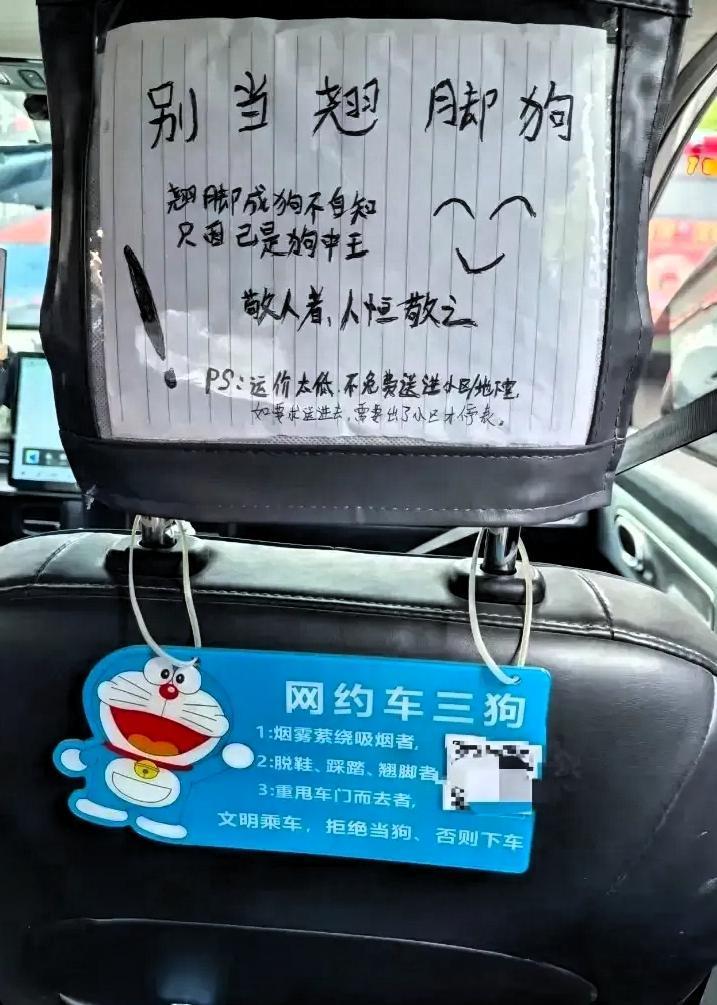 别当翘脚狗
翘脚成狗不自知
只因己是狗中王
敬人者、人恒敬之
！
PS：运价太低，不免费送进小区/地下室，
如要求送进去，需要出了小区才停表。
网约车三狗
1:烟雾萦绕吸烟者，
2:脱鞋、踩踏、翘脚者
3:重甩车门而去者，
文明乘车，拒绝当狗、否则下车